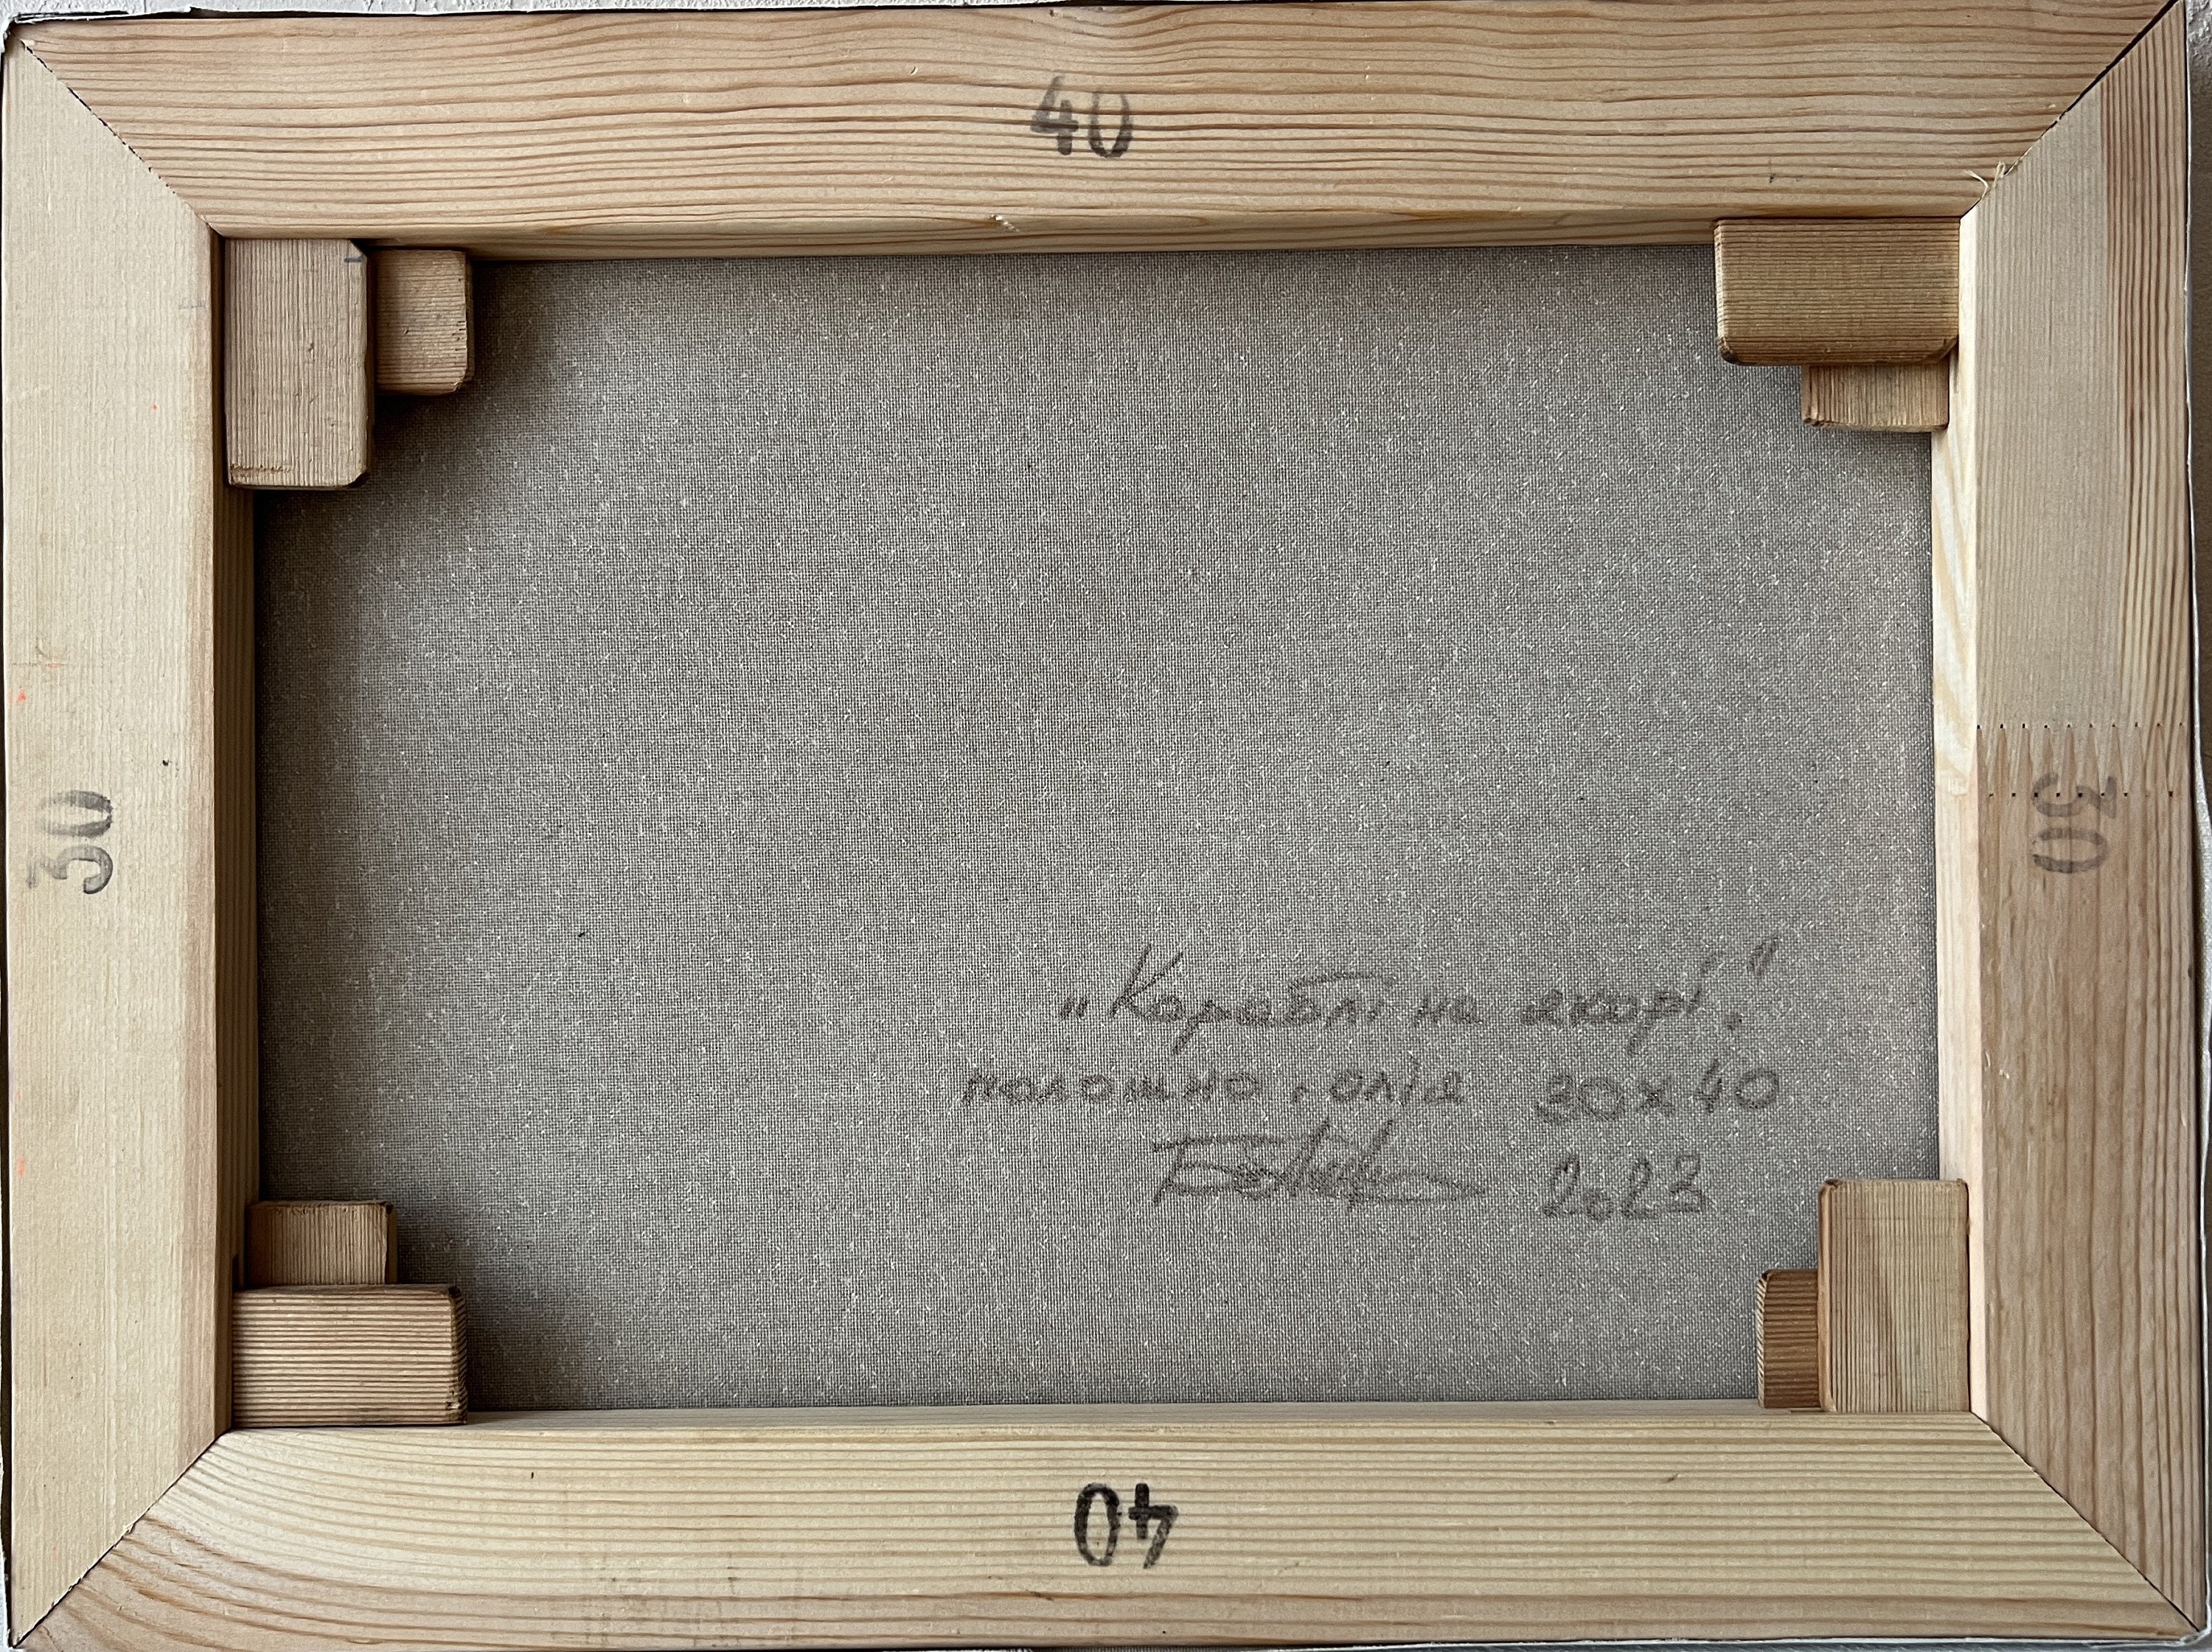 40
30
30
„Кораблі на якорі."
полотно, олія 30х40
2023
40